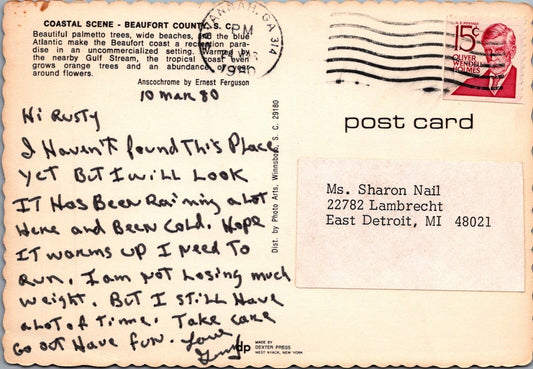 COASTAL SCENE - BEAUFORT COUNTY, S. C.
Beautiful palmetto trees, wide beaches, and the blue
Atlantic make the Beaufort coast a recreation para-
dise in an uncommercialized setting. Warmed by
the nearby Gulf Stream, the tropical coast even
grows orange trees and an abundance of year
around flowers.
Anscochrome by Ernest Ferguson
SAVANNAH, GA 314
PM
1980
U.S. POSTAGE
15¢
OLIVER
WENDELL
HOLMES
10 Mar 80
Hi Rusty
I Haven't found This Place
yet But I will Look
IT Has Been Raining a Lot
Here and Been Cold. Hope
IT warms up I Need To
Run. I am not Losing much
weight. But I still Have
a Lot of Time. Take care
Go out Have fun. Love
Dist. by Photo Arts, Winnsboro, S. C. 29180
post card
Ms. Sharon Nail
22782 Lambrecht
East Detroit, MI 48021
dp
MADE BY
DEXTER PRESS
WEST NYACK, NEW YORK